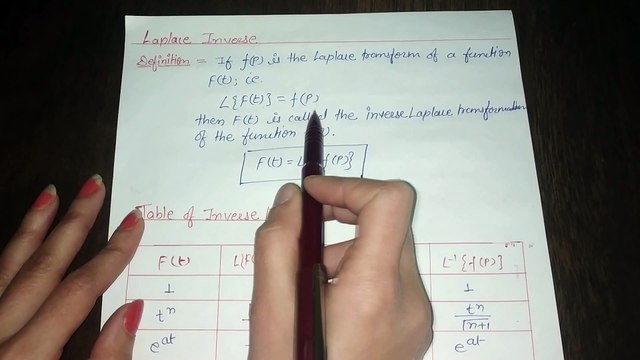 Laplace Inverse
Definition = If f(P) is the Laplace transform of a function
F(t); i.e.
L{F(t)} = f(P)
then F(t) is called the inverse Laplace transformation
of the function
F(t) = L f(P)}
Table of Inverse
F(t) L{F L⁻¹{f(P)}
1 1
tⁿ tⁿ/√n+1
e^at e^at